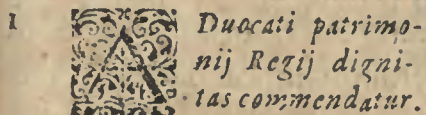 1 ADuocati patrimo-
nij Regij digni-
tas commendatur.